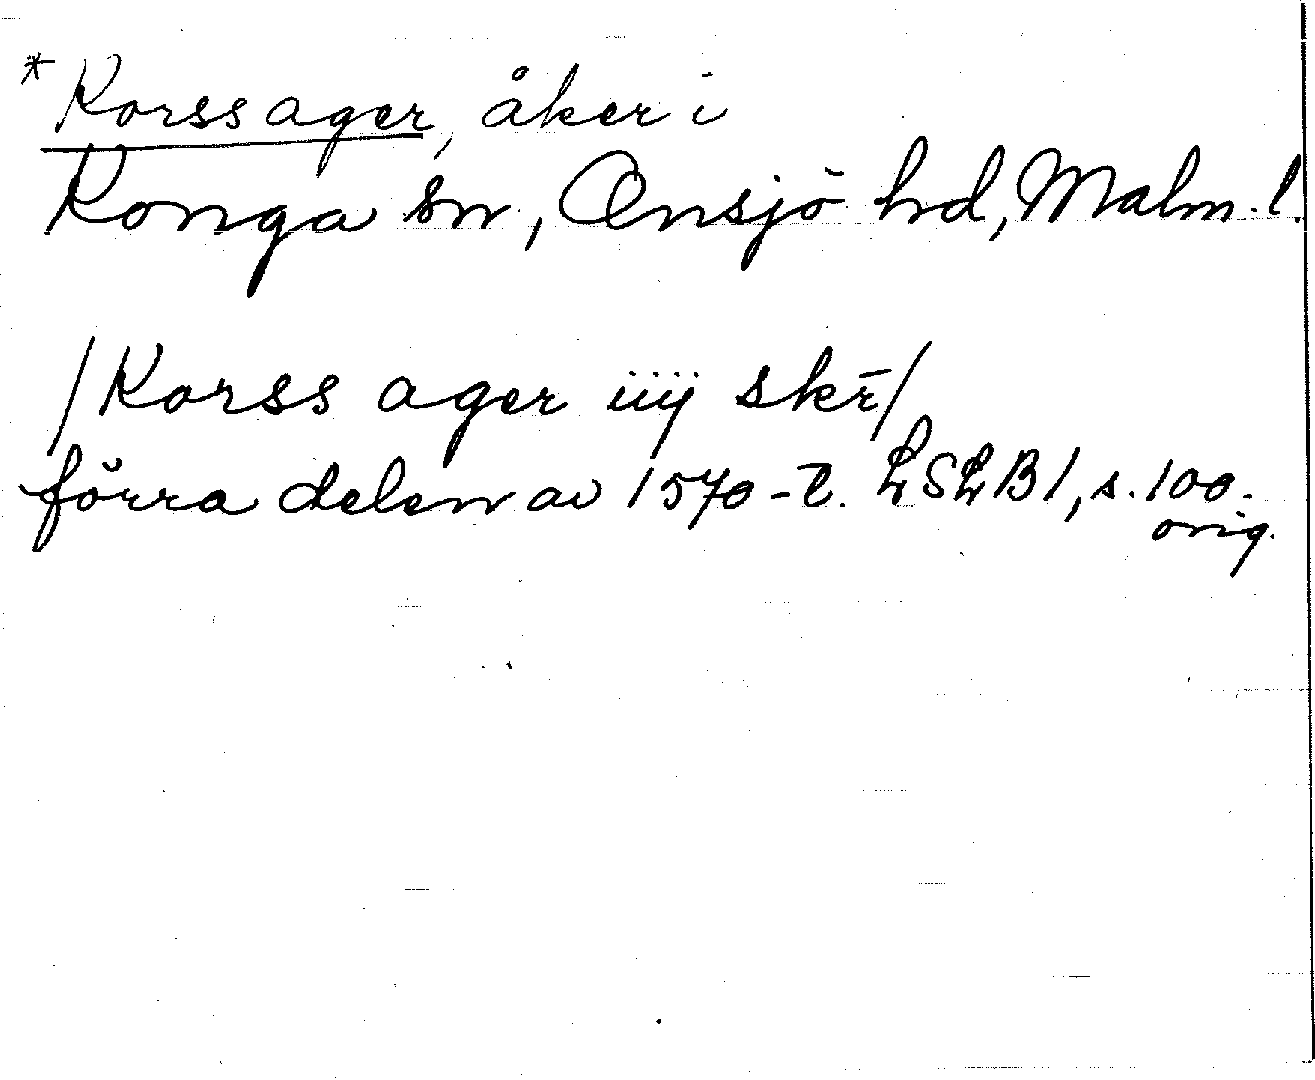 *Korss ager, åker i
Konga sn, Onsjö hd, Malm. l.
/Korss ager iiij skr̄/
förra delen av 1570-t. LSLB1, s. 100.
orig.